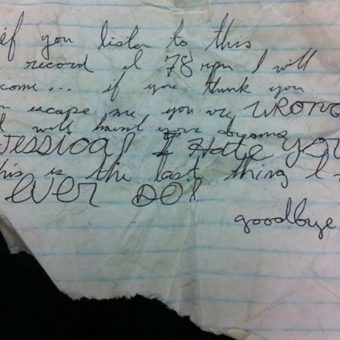 if you listen to this
record at 78 rpm I will
come... if you think you
escape me you're WRONG
I will haunt your dreams
Jessica! I Hate YOU
this is the last thing I
EVER DO!
goodbye